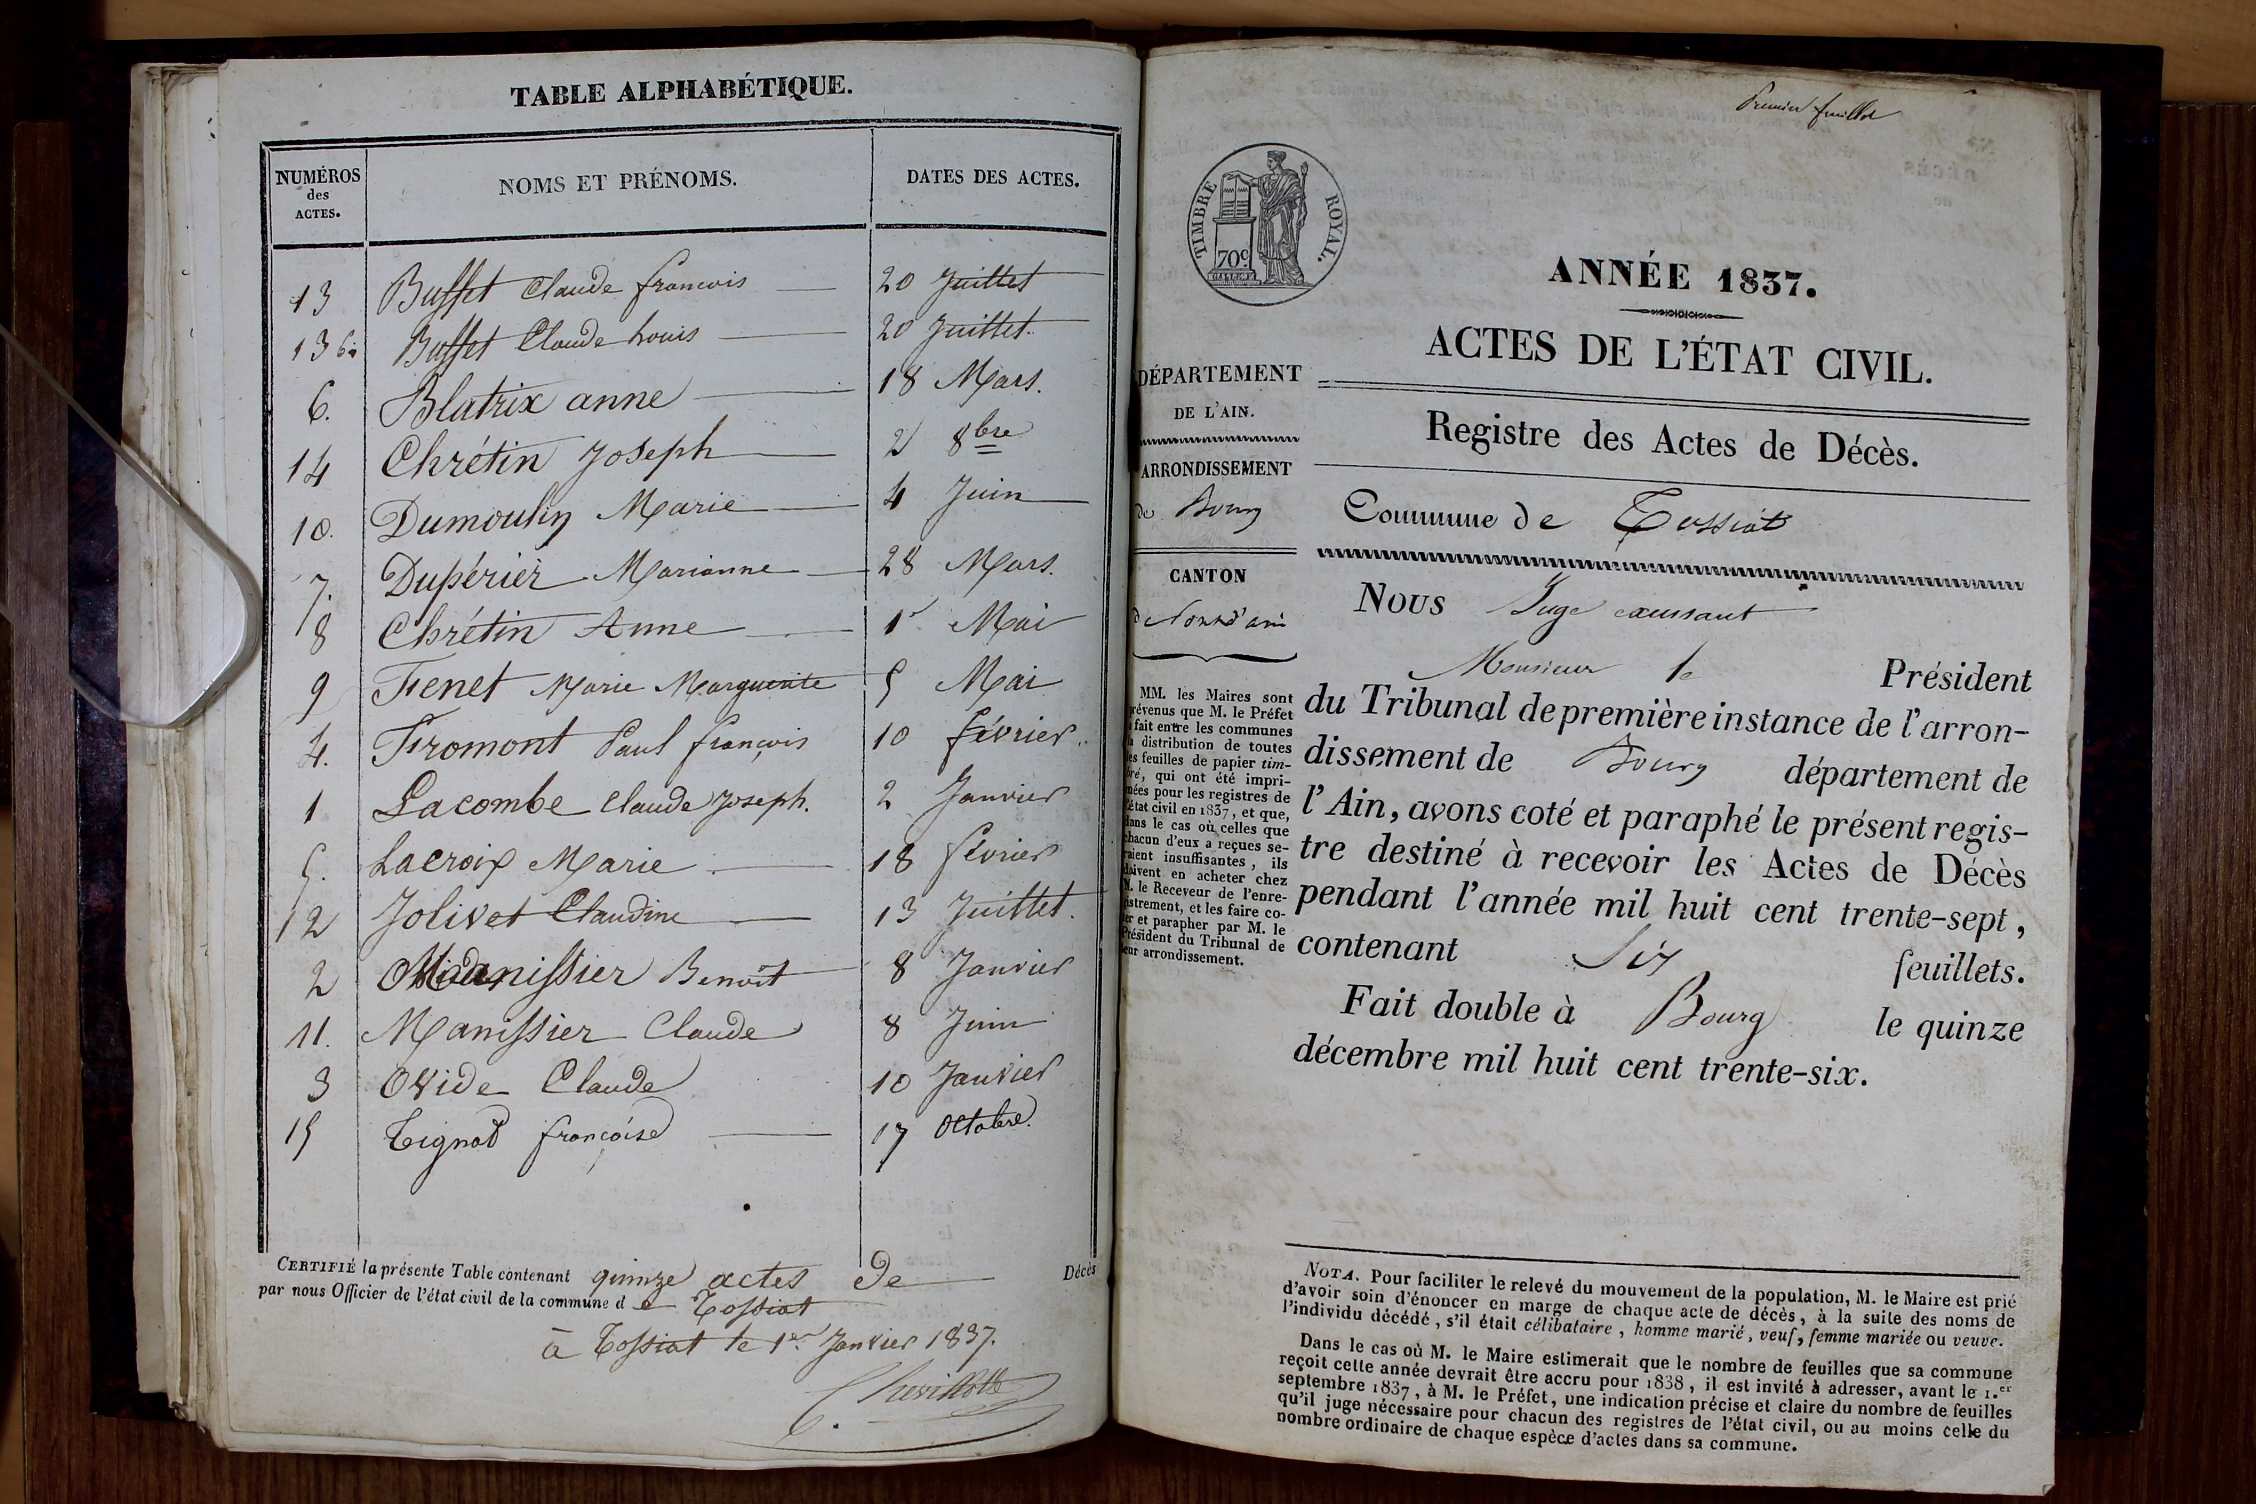 TABLE ALPHABÉTIQUE.
NUMÉROS des ACTES. NOMS ET PRÉNOMS. DATES DES ACTES.
13 Buffet Claude françois 20 Juillet
13 bis Buffet Claude Louis 20 Juillet.
6. Blutrix anne 18 Mars.
14 Chrétin Joseph 2 8bre
10. Dumoulin Marie 4 Juin
7. Dupérier Marianne 28 Mars.
8 Chrétin Anne 1r Mai
9 Fenet Marie Marguerite 5 Mai
4. Fromont Paul françois 10 février
1 Lacombe Claude Joseph. 2 Janvier
5. Lacroix Marie 18 février
12 Jolivet Claudine 13 Juillet.
2 Manissier Benoît 8 Janvier
11. Manissier Claude 8 Juin
3 Ovide Claude 10 Janvier
15 Tignat françoise 17 Octobre.
CERTIFIÉ la présente Table contenant quinze actes de Décès
par nous Officier de l'état civil de la commune d e Tossiat
à Tossiat le 1er Janvier 1837.
Premier feuillet
TIMBRE ROYAL.
70c
ANNÉE 1837.
ACTES DE L'ÉTAT CIVIL.
DÉPARTEMENT
DE L'AIN.
Registre des Actes de Décès.
ARRONDISSEMENT
de Bourg
Commune de Tossiat
CANTON
de Pont d'ain
Nous Juge exerçant
Monsieur le Président
du Tribunal de première instance de l'arron-
dissement de Bourg département de
l'Ain, avons coté et paraphé le présent regis-
tre destiné à recevoir les Actes de Décès
pendant l'année mil huit cent trente-sept,
contenant Six feuillets.
Fait double à Bourg le quinze
décembre mil huit cent trente-six.
MM. les Maires sont
prévenus que M. le Préfet
a fait entre les communes
la distribution de toutes
les feuilles de papier tim-
bré, qui ont été impri-
mées pour les registres de
l'état civil en 1837, et que,
dans le cas où celles que
chacun d'eux a reçues se-
raient insuffisantes, ils
doivent en acheter chez
M. le Receveur de l'enre-
gistrement, et les faire co-
ter et parapher par M. le
Président du Tribunal de
leur arrondissement.
NOTA. Pour faciliter le relevé du mouvement de la population, M. le Maire est prié
d'avoir soin d'énoncer en marge de chaque acte de décès, à la suite des noms de
l'individu décédé, s'il était célibataire, homme marié, veuf, femme mariée ou veuve.
Dans le cas où M. le Maire estimerait que le nombre de feuilles que sa commune
reçoit cette année devrait être accru pour 1838, il est invité à adresser, avant le 1.er
septembre 1837, à M. le Préfet, une indication précise et claire du nombre de feuilles
qu'il juge nécessaire pour chacun des registres de l'état civil, ou au moins celle du
nombre ordinaire de chaque espèce d'actes dans sa commune.